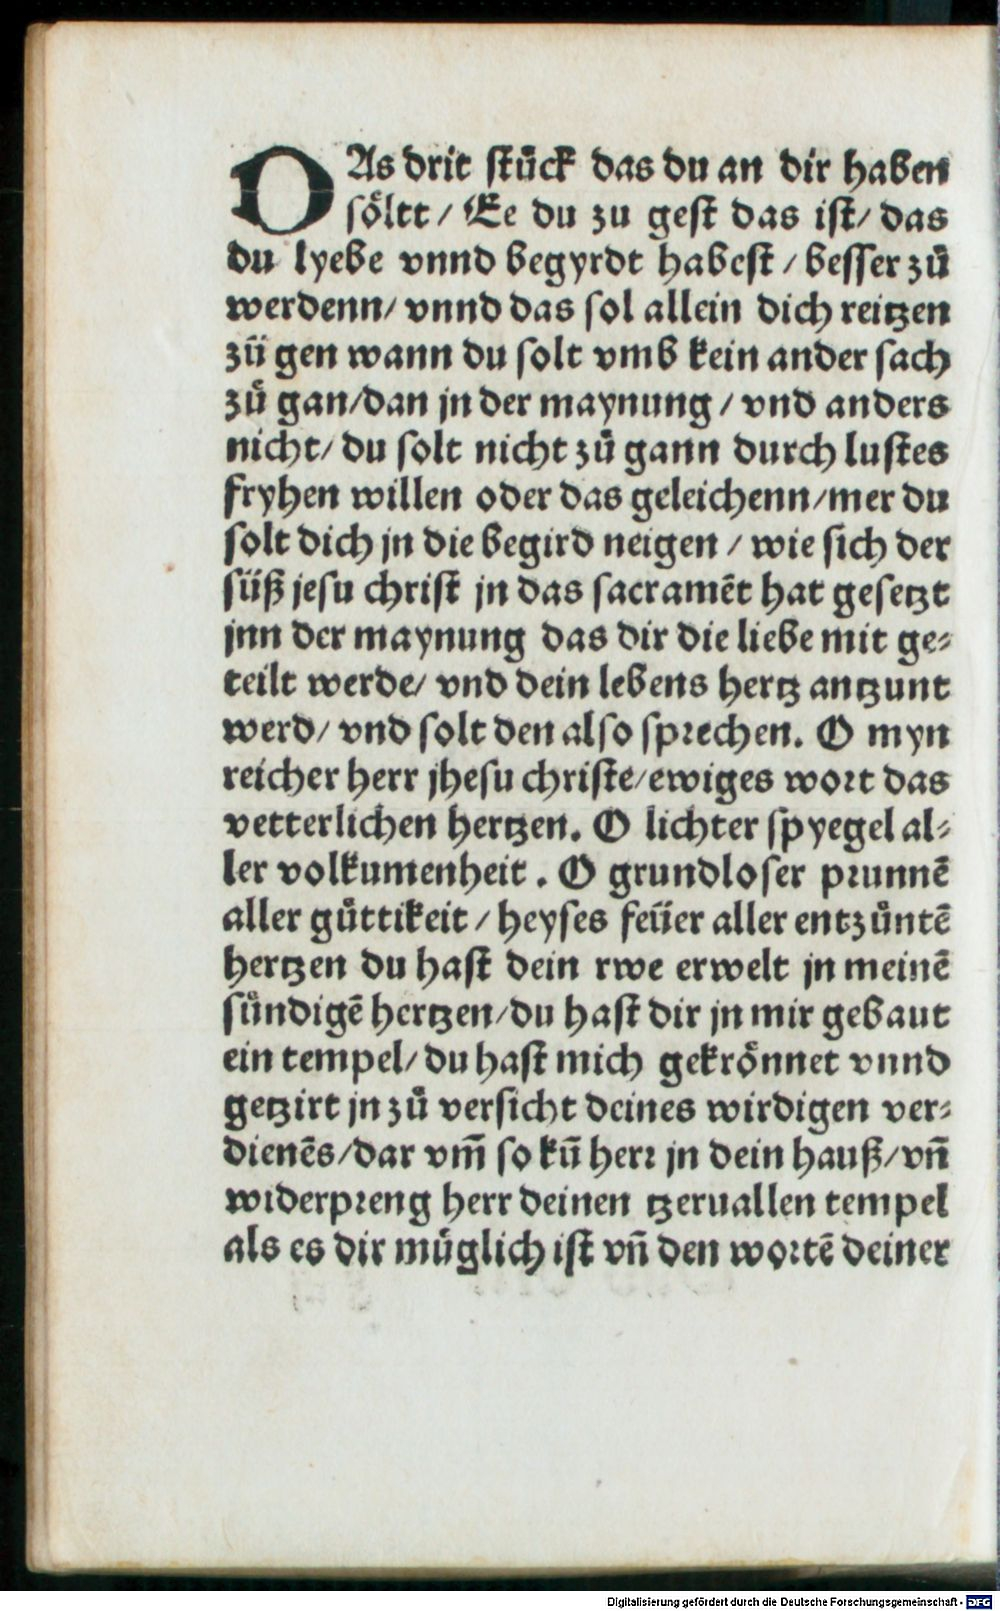 DAs drit stück das du an dir haben
söltt / Ee du zu gest das ist / das
du lyebe vnnd begyrdt habest / besser zů
werdenn / vnnd das sol allein dich reitzen
zů gen wann du solt vmb kein ander sach
zů gan / dan jn der maynung / vnd anders
nicht / du solt nicht zů gann durch lustes
fryhen willen oder das geleichenn / mer du
solt dich jn die begird neigen / wie sich der
süß jesu christ jn das sacramēt hat gesetzt
jnn der maynung das dir die liebe mit ge⸗
teilt werde / vnd dein lebens hertz antzunt
werd / vnd solt den also sprechen. O myn
reicher herr jhesu christe / ewiges wort das
vetterlichen hertzen. O lichter spyegel al⸗
ler volkumenheit. O grundloser prunnē
aller gůttikeit / heyses feüer aller entzůntē
hertzen du hast dein rwe erwelt jn meinē
sůndigē hertzen / du hast dir jn mir gebaut
ein tempel / du hast mich gekrönnet vnnd
getzirt jn zů versicht deines wirdigen ver⸗
dienēs / dar vm̄ so kū herr jn dein hauß / vn̄
widerpreng herr deinen tzeruallen tempel
als es dir můglich ist vn̄ den wortē deiner
Digitalisierung gefördert durch die Deutsche Forschungsgemeinschaft - DFG